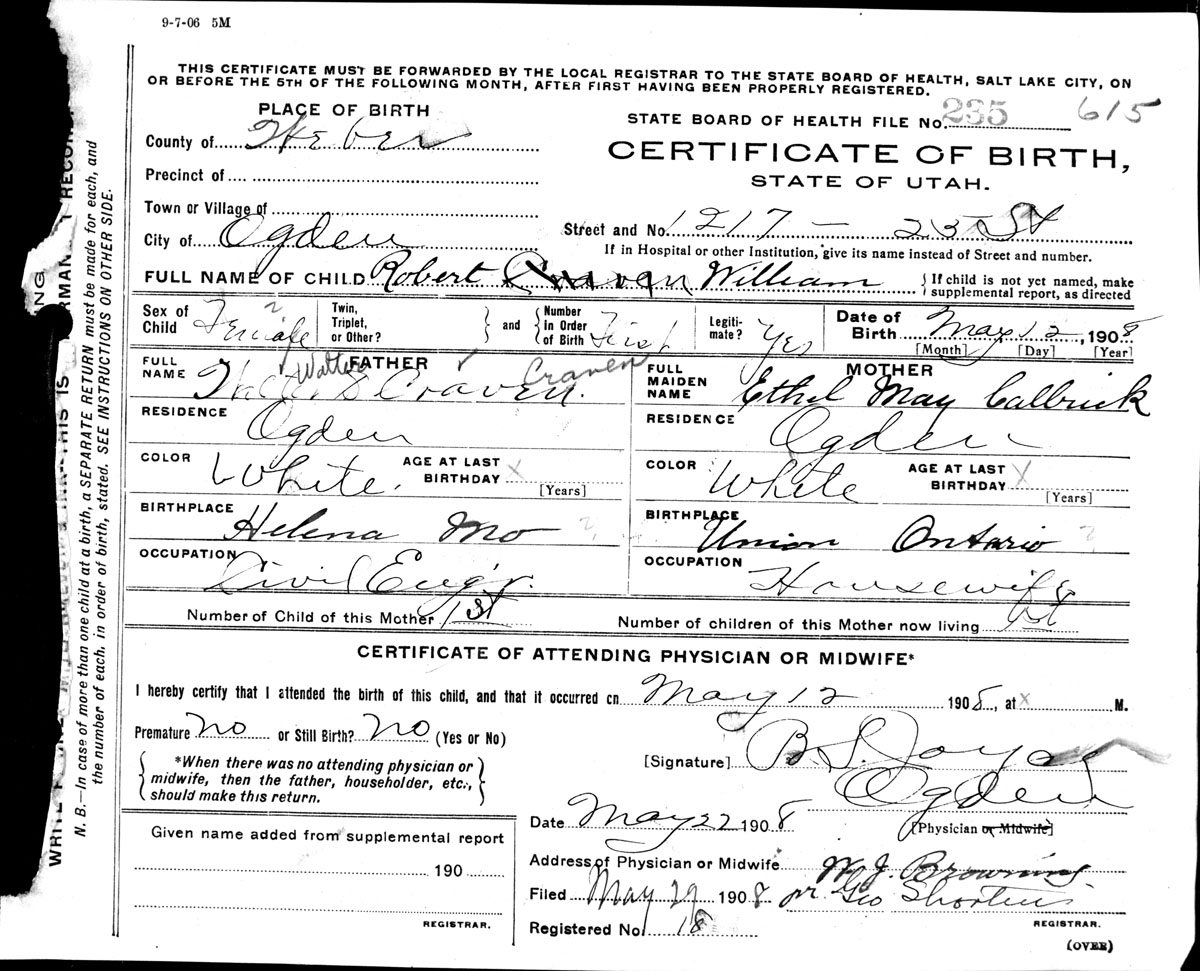 9-7-06 5M
THIS CERTIFICATE MUST BE FORWARDED BY THE LOCAL REGISTRAR TO THE STATE BOARD OF HEALTH, SALT LAKE CITY, ON
OR BEFORE THE 5TH OF THE FOLLOWING MONTH, AFTER FIRST HAVING BEEN PROPERLY REGISTERED.
PLACE OF BIRTH
STATE BOARD OF HEALTH FILE No. 235 615
County of Weber
CERTIFICATE OF BIRTH,
STATE OF UTAH.
Precinct of
Town or Village of
Street and No. 1217 — 23 St
City of Ogden
If in Hospital or other Institution, give its name instead of Street and number.
FULL NAME OF CHILD Robert Craven William
{ If child is not yet named, make
supplemental report, as directed
Sex of Child Female ?
Twin, Triplet, or Other? } and { Number in Order of Birth First
Legiti- mate? Yes
Date of Birth May 12, 1908
[Month] [Day] [Year]
FATHER
FULL NAME Walter S Craven. Craven
MOTHER
FULL MAIDEN NAME Ethel May Calbrick
RESIDENCE Ogden
RESIDENCE Ogden
COLOR White. AGE AT LAST BIRTHDAY x [Years]
COLOR White AGE AT LAST BIRTHDAY x [Years]
BIRTHPLACE Helena Mo ?
BIRTHPLACE Union Ontario ?
OCCUPATION Civil Eng'r.
OCCUPATION Housewife
Number of Child of this Mother 1st
Number of children of this Mother now living 1st
CERTIFICATE OF ATTENDING PHYSICIAN OR MIDWIFE*
I hereby certify that I attended the birth of this child, and that it occurred on May 12 1908, at x M.
Premature No or Still Birth? No (Yes or No)
*When there was no attending physician or
midwife, then the father, householder, etc.,
should make this return.
[Signature] B.S. Joyce
Ogden
Date May 22 1908
[Physician or Midwife]
Given name added from supplemental report
190
REGISTRAR.
Address of Physician or Midwife W. J. Browning
Filed May 29 1908 pr Geo Shorten
Registered No. 18
REGISTRAR.
(OVER)
N. B.—In case of more than one child at a birth, a SEPARATE RETURN must be made for each, and
the number of each, in order of birth, stated. SEE INSTRUCTIONS ON OTHER SIDE.